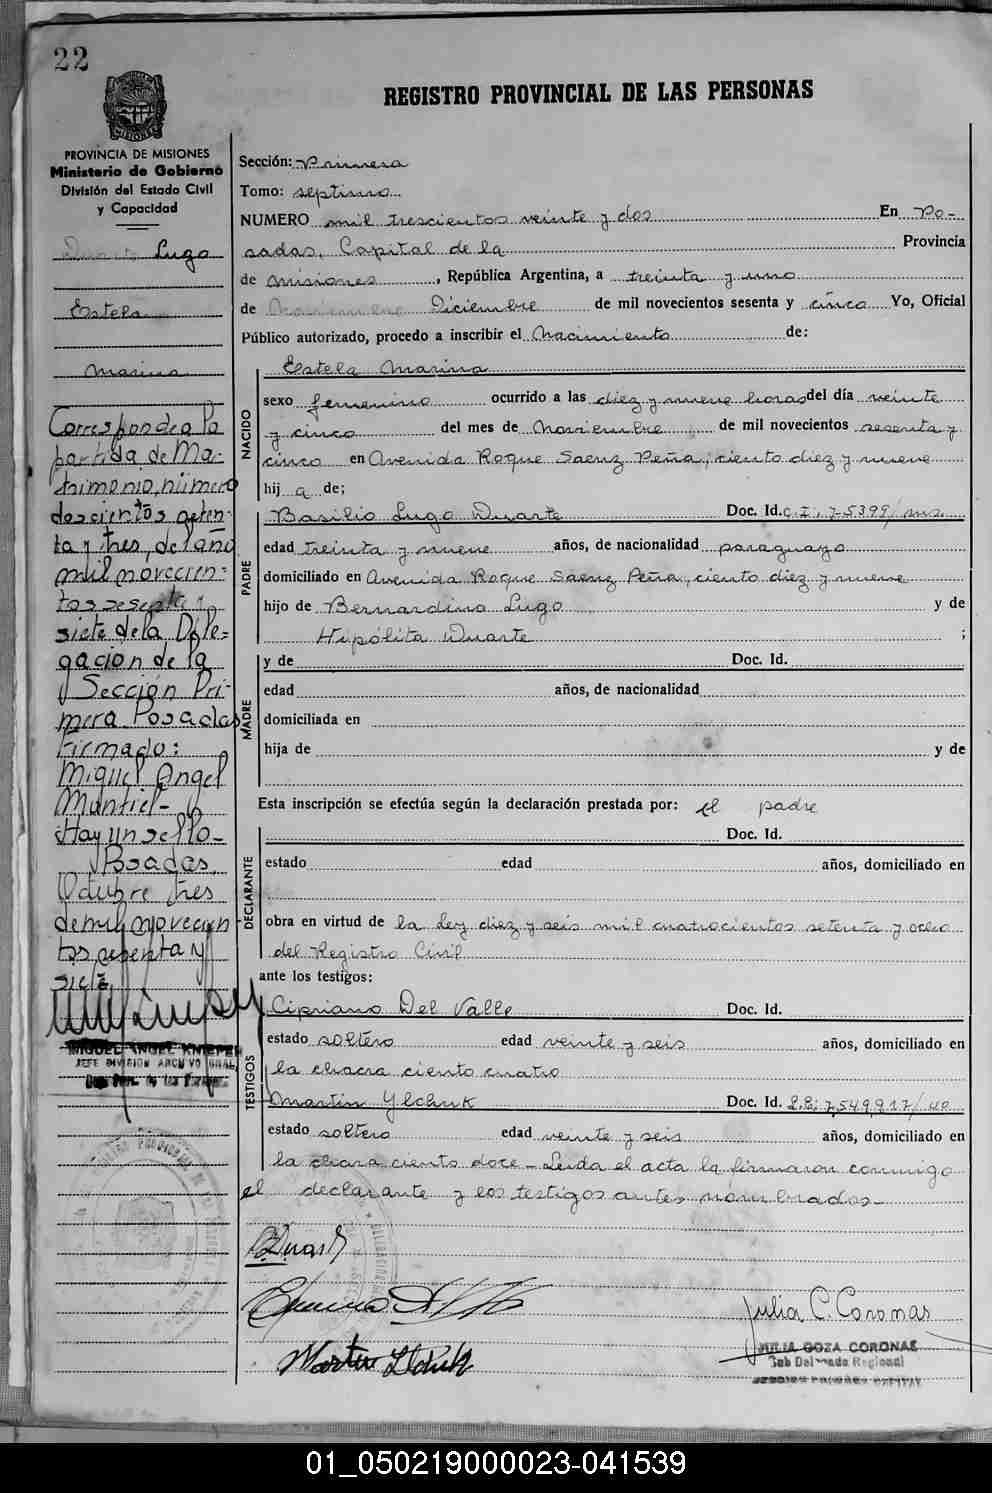 22
REGISTRO PROVINCIAL DE LAS PERSONAS
MISIONES
PROVINCIA DE MISIONES
Ministerio de Gobierno
División del Estado Civil
y Capacidad
Lugo
Estela
Marina
Corresponde a la
partida de Ma-
trimonio, número
doscientos
ta y tres, del año
mil novecien-
tos sesenta y
siete de la Dele-
gación de la
Sección Pri-
mera Posadas
Firmado:
Miguel Angel
Montiel-
Hay un sello-
Posadas,
Octubre tres
de mil novecien
tos sesenta y
siete
MIGUEL ANGEL
JEFE DIVISION ARCHIVO GRAL.
Sección: Primera
Tomo: septimo
NUMERO mil trescientos veinte y dos En Po-
sadas, Capital de la Provincia
de Misiones, República Argentina, a treinta y uno
de Noviembre Diciembre de mil novecientos sesenta y cinco Yo, Oficial
Público autorizado, procedo a inscribir el Nacimiento de:
NACIDO
Estela Marina
sexo femenino ocurrido a las diez y nueve horas del día veinte
y cinco del mes de Noviembre de mil novecientos sesenta y
cinco en Avenida Roque Saenz Peña, ciento diez y nueve
hij a de;
PADRE
Basilio Lugo Duarte Doc. Id. C.I. 75399/
edad treinta y nueve años, de nacionalidad paraguayo
domiciliado en Avenida Roque Saenz Peña, ciento diez y nueve
hijo de Bernardino Lugo y de
Hipólita Duarte ;
MADRE
y de Doc. Id.
edad años, de nacionalidad
domiciliada en
hija de y de
Esta inscripción se efectúa según la declaración prestada por: el padre
DECLARANTE
Doc. Id.
estado edad años, domiciliado en
obra en virtud de la Ley diez y seis mil cuatrocientos setenta y ocho
del Registro Civil
ante los testigos:
TESTIGOS
Cipriano Del Valle Doc. Id.
estado soltero edad veinte y seis años, domiciliado en
la chacra ciento cuatro
Martin Ylchuk Doc. Id. L.E; 7,549,217/
estado soltero edad veinte y seis años, domiciliado en
la chara ciento doce - Leida el acta la firmaron conmigo
el declarante y los testigos antes nombrados-
Julia C. Coronas
JULIA GOZA CORONAS
Sub Delegada Regional
SECCION PRIMERA CAPITAL
01_050219000023-041539